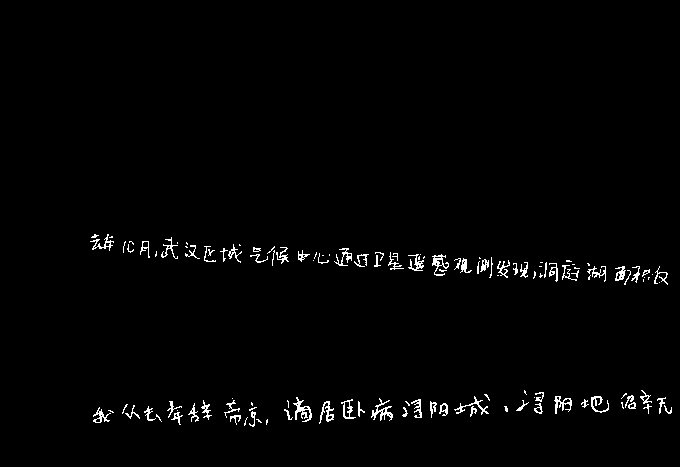 去年10月,武汉区域气候中心通过卫星遥感观测发现,洞庭湖面积仅
我从去年辞帝京,谪居卧病浔阳城,浔阳地僻无